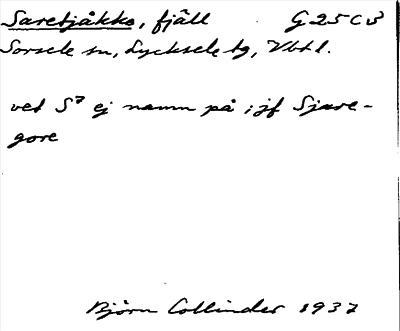 Saretjåkko, fjäll G 25 C d
Sorsele sn, Lycksele tg, Vbtl.
ved S⁷ ej namn på; jf Sjare-
gore
Björn Collinder 1937